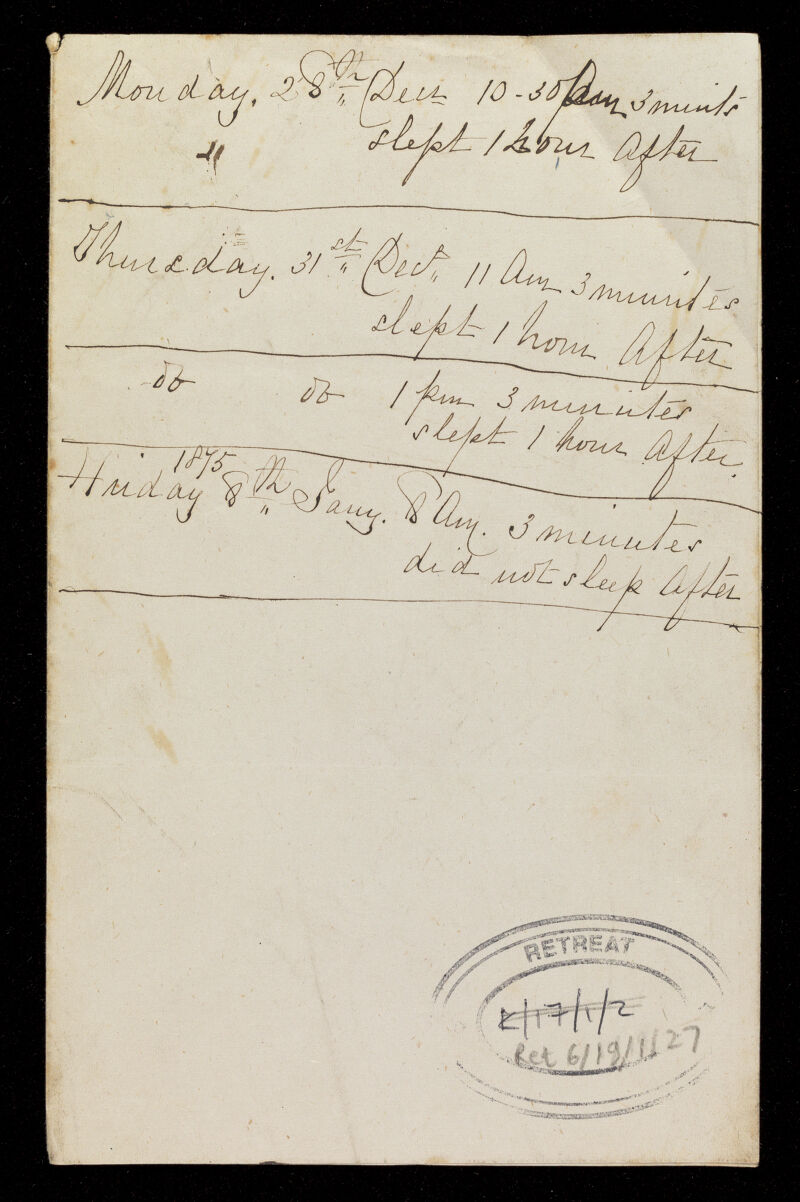 Monday. 28th Decr 10-30 pm 3 minits
" slept 1 hour After
Thursday. 31st Decr 11 Am 3 minutes
slept 1 hour After
do do 1 pm 3 minutes
slept 1 hour After.
1875
Friday 8th Jany. 8 Am. 3 minutes
did not sleep After
RETREAT
K/17/1/2
Ret 6/19/1/27